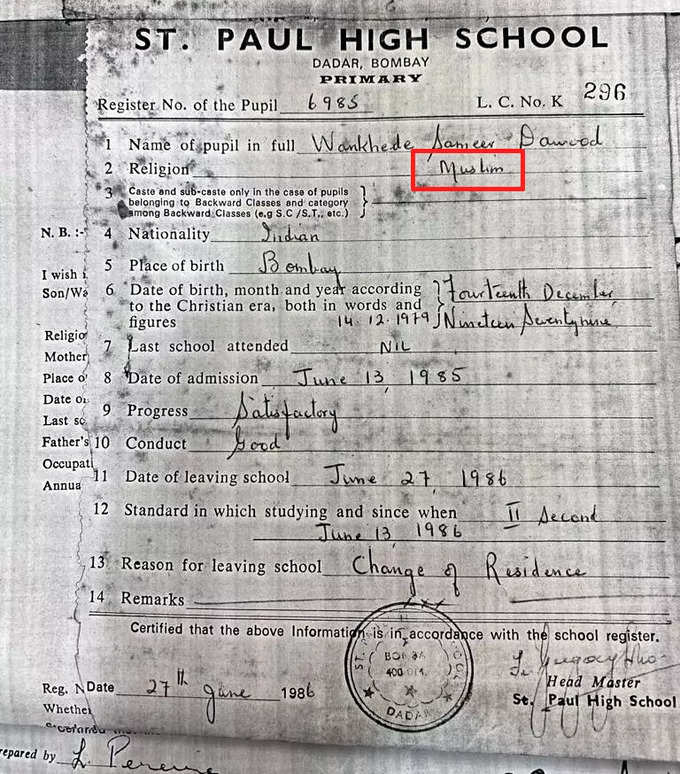 ST. PAUL HIGH SCHOOL
DADAR, BOMBAY
PRIMARY
Register No. of the Pupil 6985 L. C. No. K 296
1 Name of pupil in full Wankhede Sameer Dawood
2 Religion Muslim
3 Caste and sub-caste only in the case of pupils
belonging to Backward Classes and category
among Backward Classes (e.g S.C /S.T., etc.)
N. B. :- 4 Nationality Indian
5 Place of birth Bombay
I wish
6 Date of birth, month and year according Fourteenth December
Son/Wa
to the Christian era, both in words and
figures 14.12.1979 Nineteen Seventynine
Religio
7 Last school attended NIL
Mother
Place o 8 Date of admission June 13, 1985
Date o
9 Progress Satisfactory
Last sc
Father's 10 Conduct Good
Occupati
11 Date of leaving school June 27, 1986
Annua
12 Standard in which studying and since when II Second
June 13, 1986
13 Reason for leaving school Change of Residence
14 Remarks
Certified that the above Information is in accordance with the school register.
BOMBAY
400 014.
DADAR
Head Master
Reg. N Date 27th June 1986
St. Paul High School
Whether
repared by L. Pereira